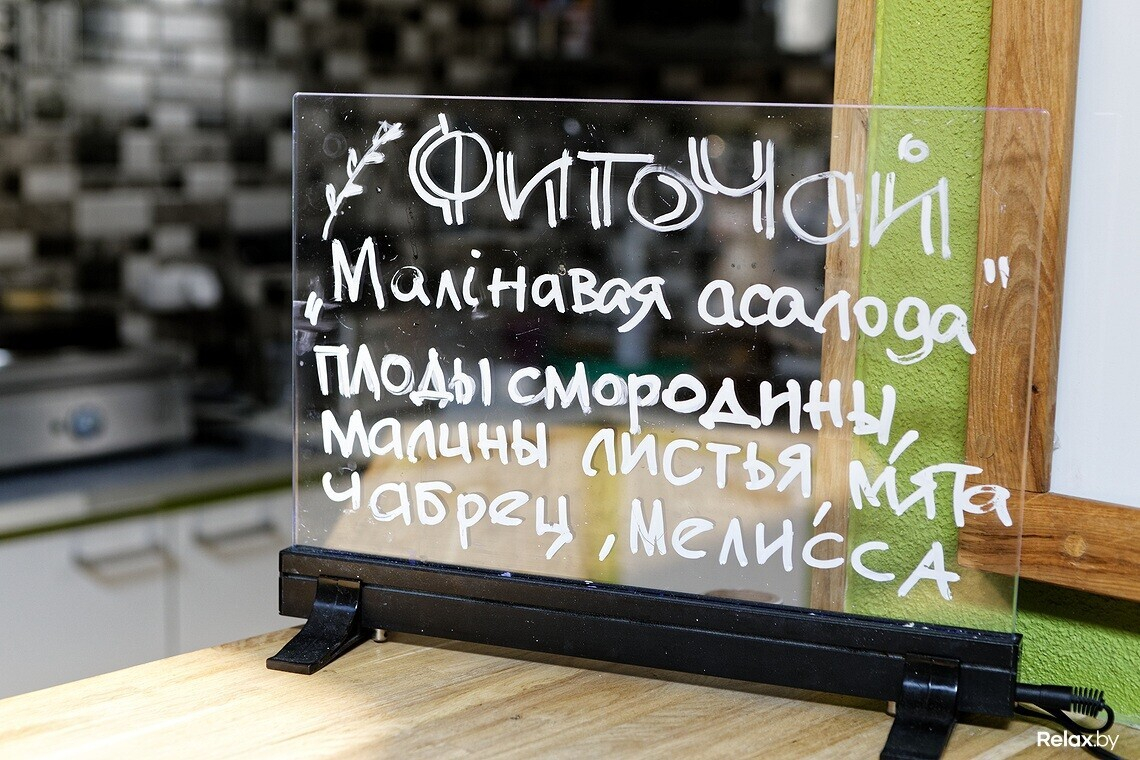 ФИТОЧАЙ
„Малінавая асалода"
Плоды смородины,
Малины листья мята
Чабрец, Мелисса
Relax.by